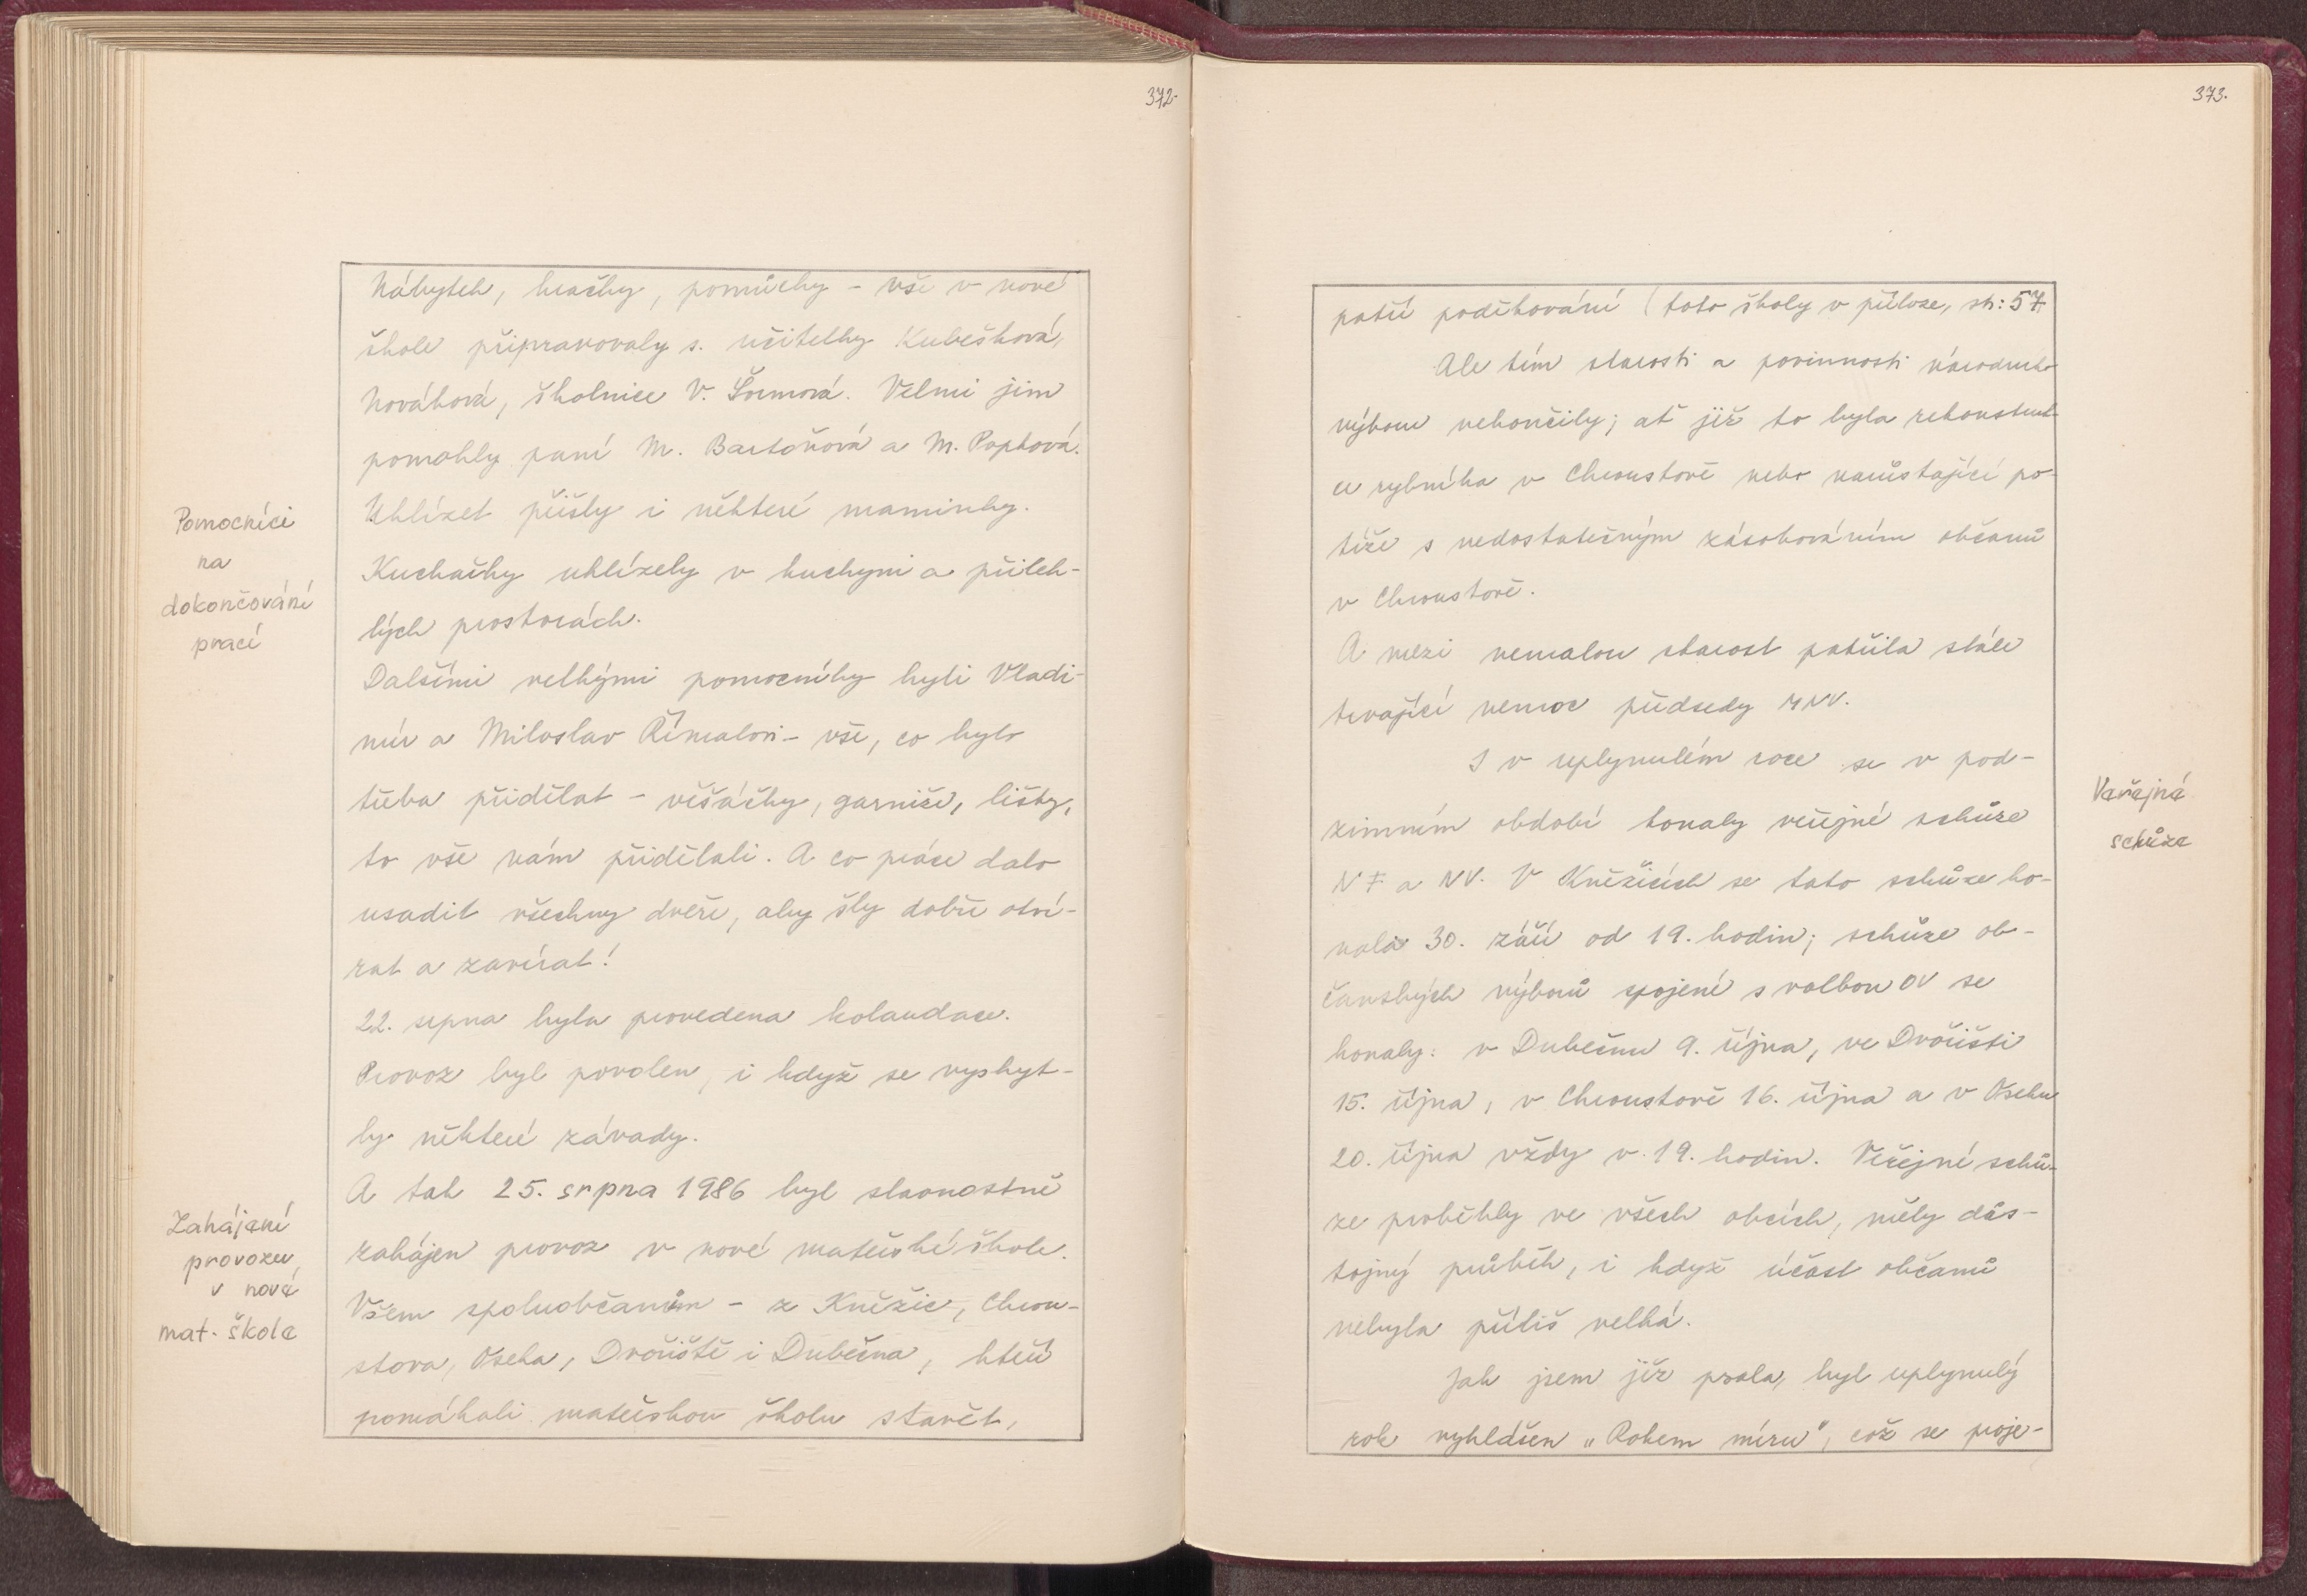 372.
Nábytek, hračky, pomůcky - vše v nové
škole připravovaly s. učitelky Kubešková,
Nováková, školnice V. Šormová. Velmi jim
pomohly paní M. Bartoňová a M. Popková.
Uklízet přišly i některé maminky.
Pomocníci
na
dokončování
prací
Kuchařky uklízely v kuchyni a přileh-
lých prostorách.
Dalšími velkými pomocníky byli Vladi-
mír a Miloslav Římalovi - vše, co bylo
třeba přidělat - věšáčky, garniže, lišty,
to vše nám přidělali. A co práce dalo
usadit všechny dveře, aby šly dobře otví-
rat a zavírat!
22. srpna byla provedena kolaudace.
Provoz byl povolen, i když se vyskyt-
ly některé závady.
A tak 25. srpna 1986 byl slavnostně
zahájen provoz v nové mateřské škole.
Zahájení
provozu
v nové
mat. škole
Všem spoluobčanům - z Kněžic, Chrou-
stova, Oseka, Dvořiště i Dubečna, kteří
pomáhali mateřskou školu stavět,
373.
patří poděkování (foto školy v příloze, str: 57
Ale tím starosti a povinnosti národního
výboru nekončily; ať již to byla rekonstruk-
ce rybníka v Chroustově nebo narůstající po-
tíže s nedostatečným zásobováním občanů
v Chroustově.
A mezi nemalou starost patřila stále
trvající nemoc předsedy MNV.
I v uplynulém roce se v pod-
zimním období konaly veřejné schůze
Veřejné
schůze
NF a NV. V Kněžicích se tato schůze ko-
nala 30. září od 19. hodin; schůze ob-
čanských výborů spojené s volbou OV se
konaly: v Dubečnu 9. října, ve Dvořišti
15. října, v Chroustově 16. října a v Oseku
20. října vždy v 19. hodin. Veřejné schů-
ze proběhly ve všech obcích, měly důs-
tojný průběh, i když účast občanů
nebyla příliš velká.
Jak jsem již psala, byl uplynulý
rok vyhlášen "Rokem míru", což se proje-